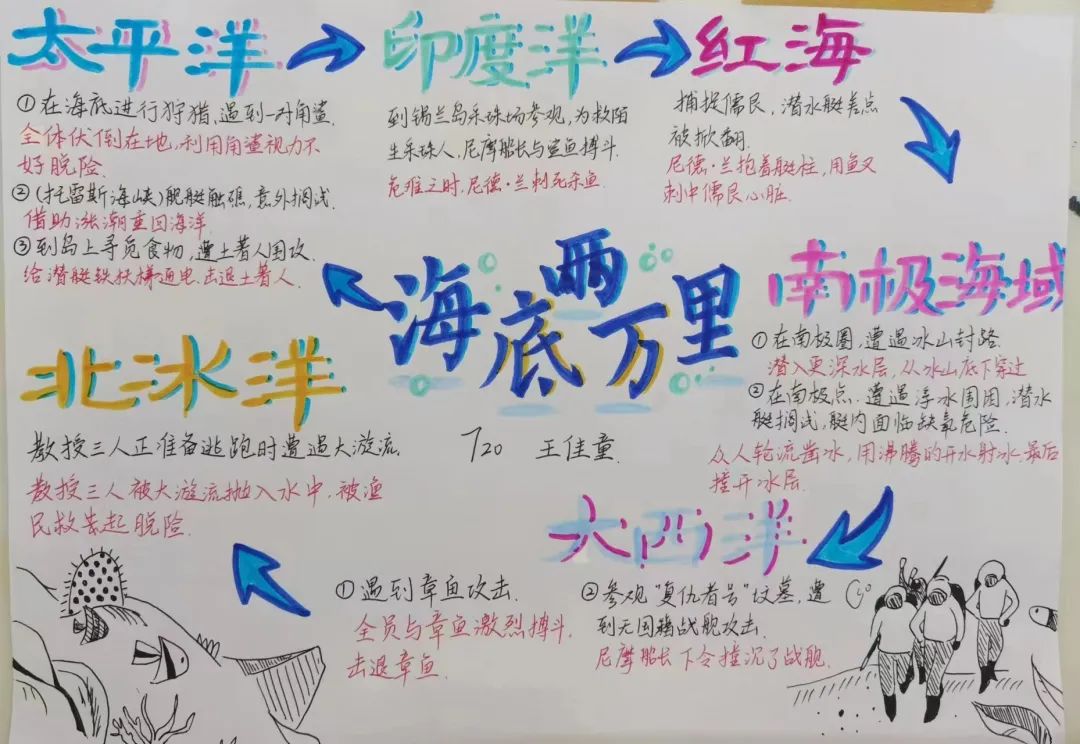 太平洋
①在海底进行狩猎,遇到一对角鲨.
全体伏倒在地,利用角鲨视力不
好脱险.
②(托雷斯海峡)舰艇触礁,意外搁浅.
借助涨潮重回海洋.
③到岛上寻觅食物,遭土著人围攻.
给潜艇铁扶梯通电,击退土著人.
印度洋
到锡兰岛采珠场参观,为救陌
生采珠人,尼摩船长与鲨鱼搏斗.
危难之时,尼德·兰刺死杀鱼.
红海
捕捉儒艮,潜水艇差点
被掀翻.
尼德·兰抱着艇柱,用鱼叉
刺中儒艮心脏.
海底两万里
720 王佳童.
南极海域
①在南极圈,遭遇冰山封路.
潜入更深水层,从冰山底下穿过
②在南极点.遭遇浮冰围困,潜水
艇搁浅,艇内面临缺氧危险.
众人轮流凿冰,用沸腾的开水射冰.最后
撞开冰层.
大西洋
①遇到章鱼攻击.
全员与章鱼激烈搏斗.
击退章鱼.
②参观“复仇者号”坟墓,遭
到无国籍战舰攻击.
尼摩船长下令撞沉了战舰.
北冰洋
教授三人正准备逃跑时遭遇大漩流.
教授三人被大漩流抛入水中,被渔
民救起脱险.